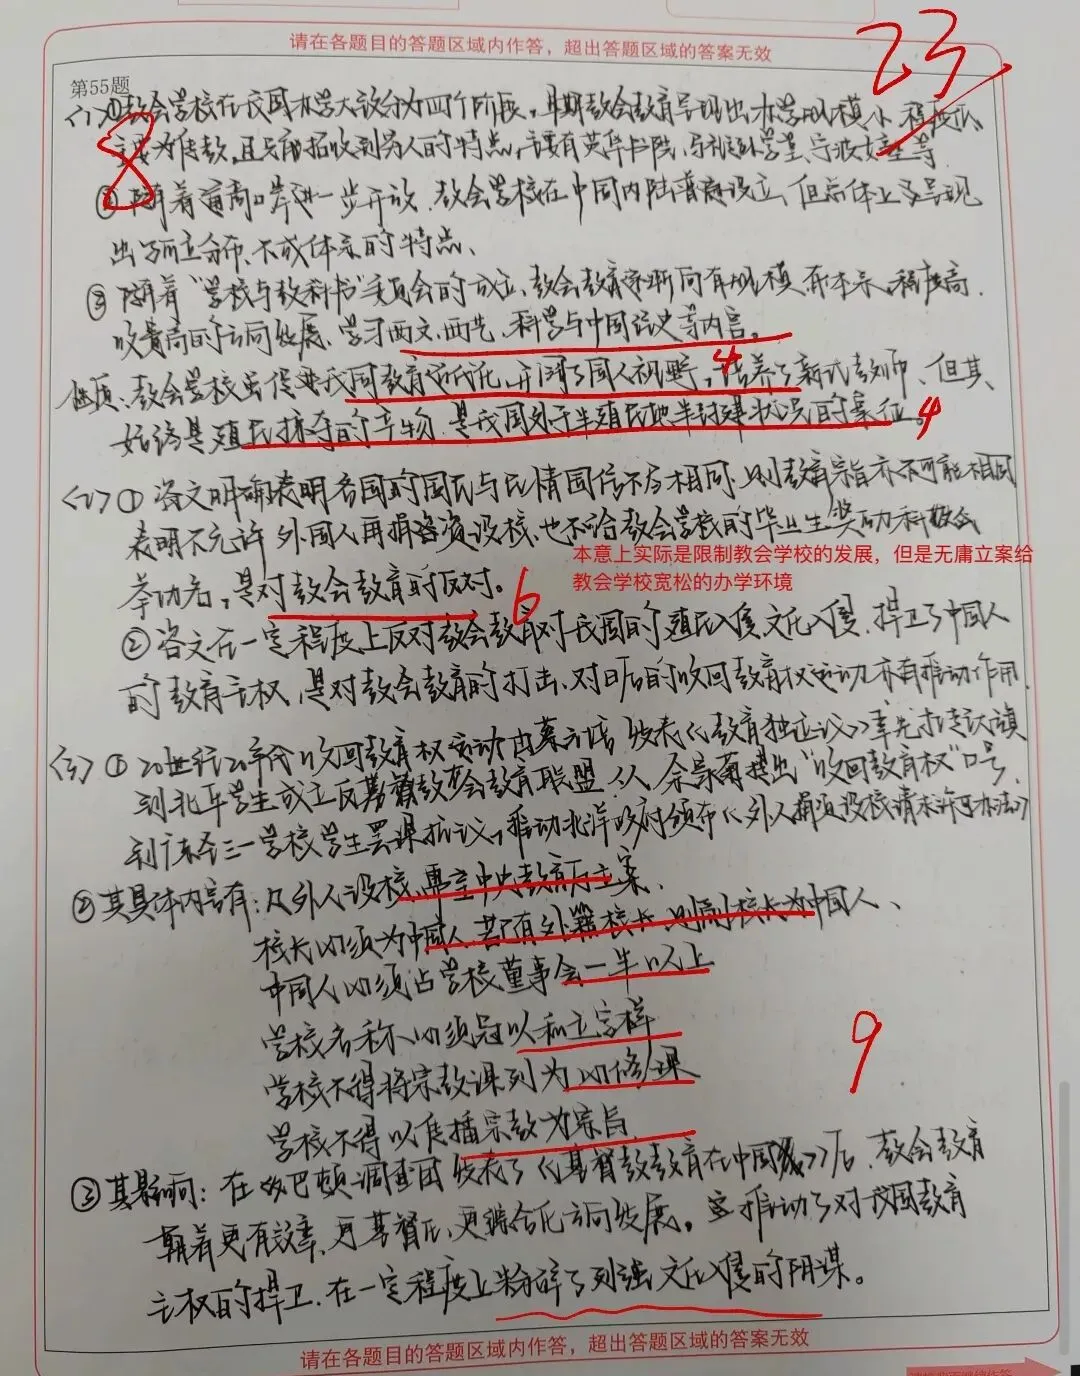 请在各题目的答题区域内作答，超出答题区域的答案无效
23
第55题
8
<1>①教会学校在我国办学大致分为四个阶段，早期教会教育呈现出办学规模小、程度低、
主要为传教，且只能招收到穷人的特点，主要有英华书院、马礼逊学堂、宁波女塾等
②随着通商口岸进一步开放，教会学校在中国内陆普遍设立，但总体上又呈现
出分布、不成体系的特点、
③随着“学校与教科书”委员会的成立，教会教育逐渐向有规模、有体系、程度高、
收费高的方向发展、学习西文、西艺、科学与中国语史等内容。
性质：教会学校虽促进我国教育近代化，开阔了国人视野，培养了新式教师、但其
4
始终是殖民掠夺的产物，是我国处于半殖民地半封建状况的象征。
4
<2>①咨文明确表明各国的国民与民情国信不尽相同，则教育宗旨亦不可能相同
表明不允许外国人再捐资设校、也不给教会学校的毕业生奖励科
举功名，是对教会教育的反对。
6
本意上实际是限制教会学校的发展，但是无庸立案给
教会学校宽松的办学环境
②咨文在一定程度上反对教会教育对我国的殖民入侵、文化入侵，捍卫了中国人
的教育主权，是对教会教育的打击、对日后的收回教育权运动亦有推动作用。
<3>①20世纪20年代，收回教育权运动由蔡元培发表《教育独立议》率先扛起大旗
到北平学生成立反基督教教会教育联盟、从余家菊提出“收回教育权”口号、
到广东圣三一学校学生罢课抗议，推动北洋政府颁布《外人捐资设校请求许可办法》
②其具体内容有：凡外人设校，需至中央教育厅立案、
校长必须为中国人，若有外籍校长，则副校长为中国人、
中国人必须占学校董事会一半以上
学校名称必须冠以私立字样
学校不得将宗教课列为必修课
9
学校不得以传播宗教为宗旨
③其影响：在巴顿调查团发表了《基督教教育在中国》后，教会教育
朝着更有效率、更基督化、更综合化方向发展。推动了对我国教育
主权的捍卫，在一定程度上粉碎了列强文化入侵的阴谋。
请在各题目的答题区域内作答，超出答题区域的答案无效